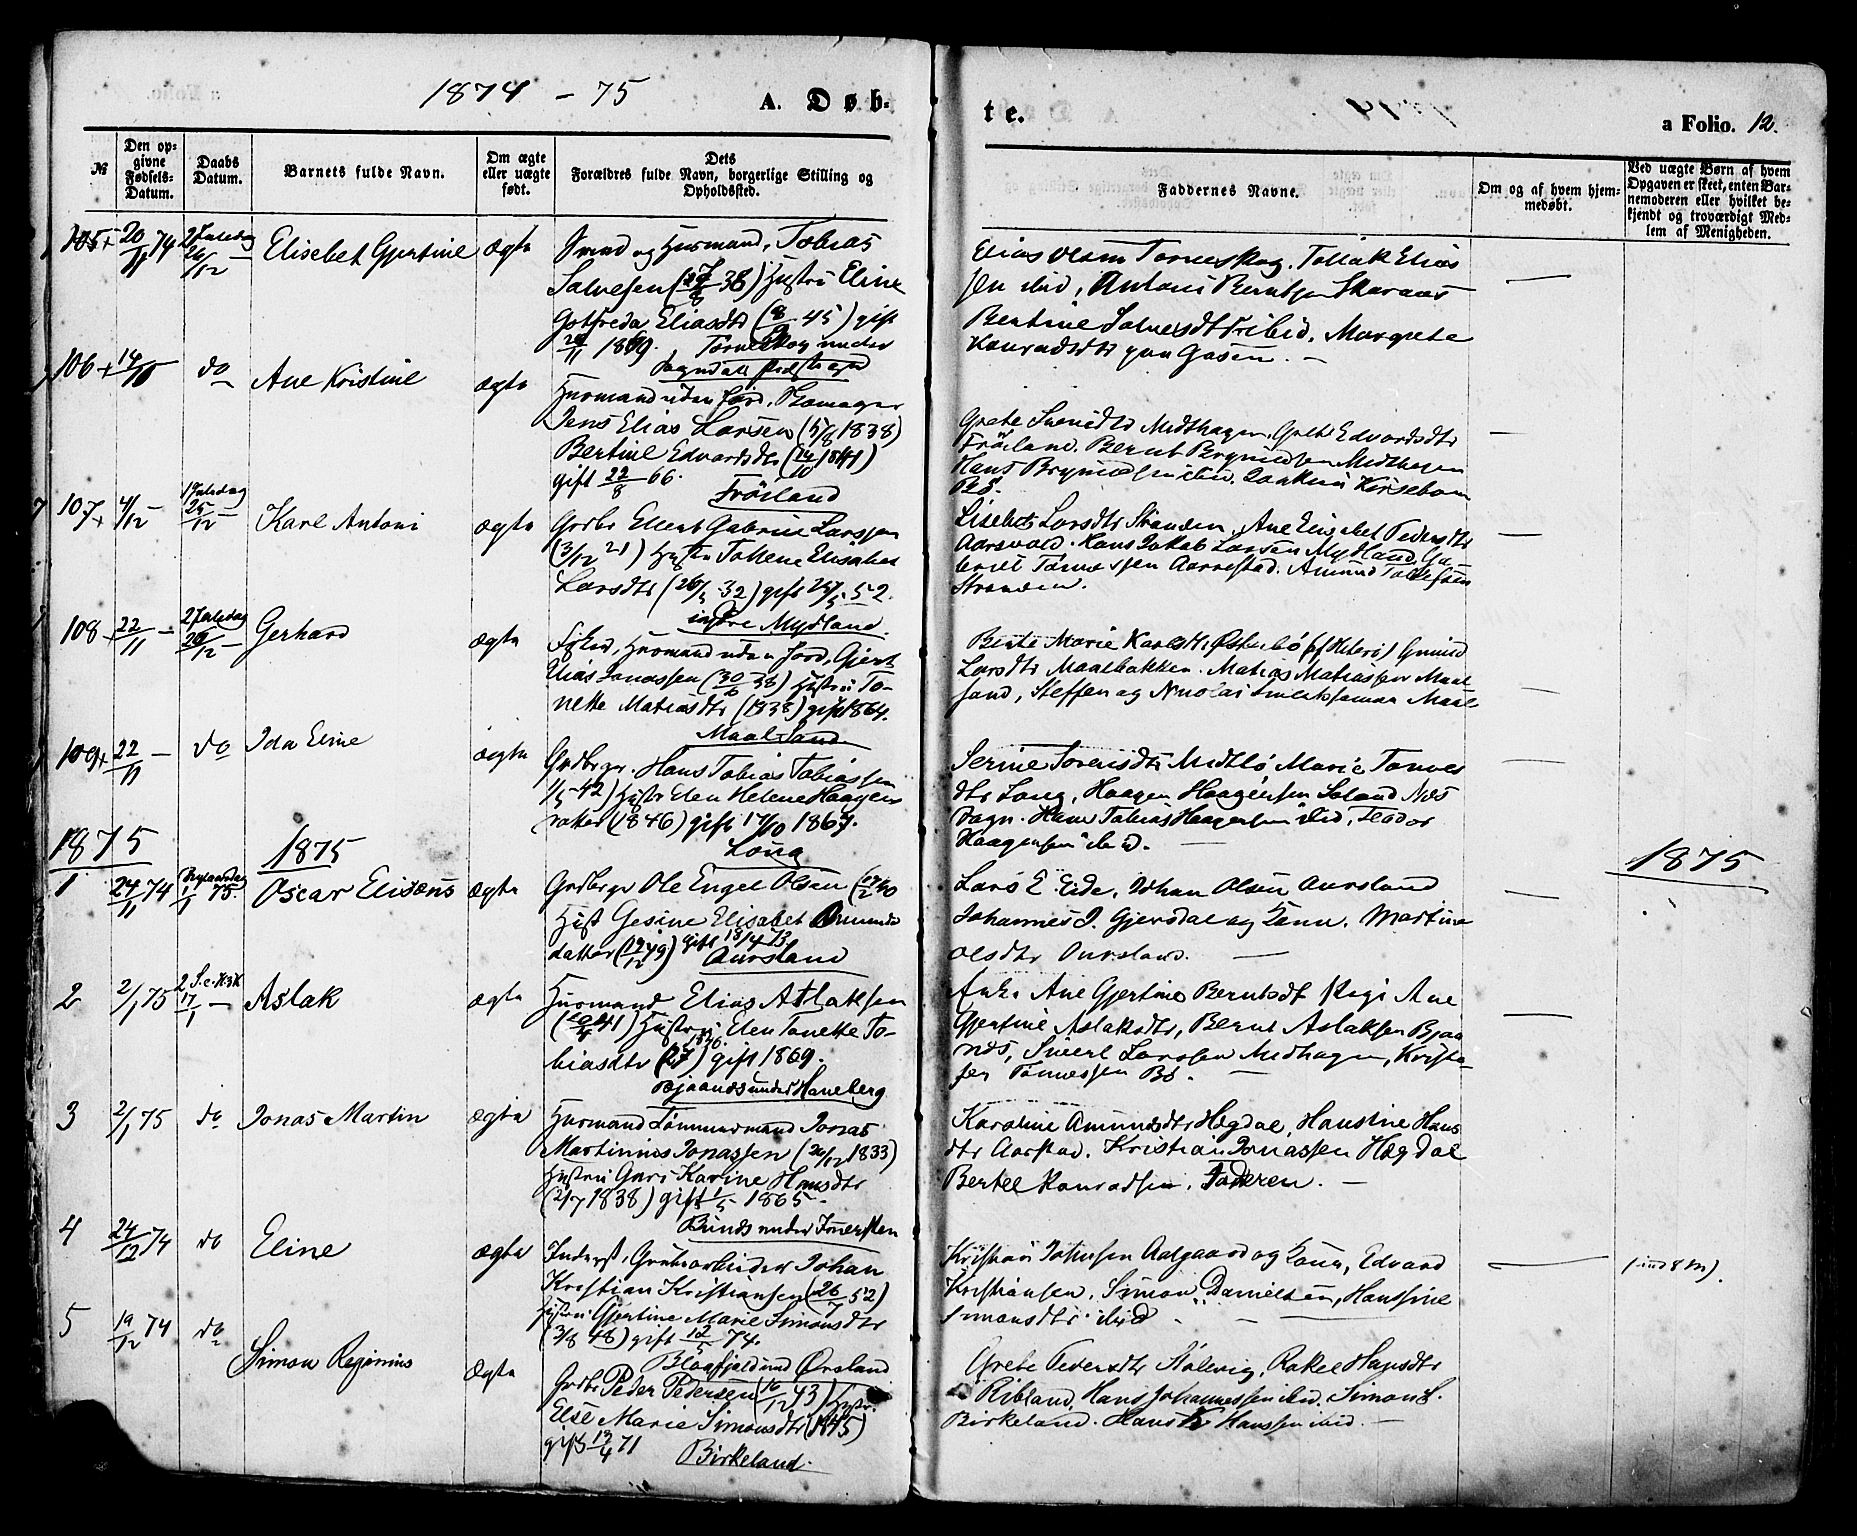 1874 - 75
A. Døb-
te.
a Folio. 12.
№
Den op-
givne
Fødsels-
Datum.
Daabs
Datum.
Barnets fulde Navn.
Om ægte
eller uægte
født.
Dets
Forældres fulde Navn, borgerlige Stilling og
Opholdssted.
Faddernes Navne.
Om og af hvem hjem-
medøbt.
Ved uægte Børn af hvem
Opgaven er skeet, enten Bar-
nemoderen eller hvilket be-
kjendt og troværdigt Med-
lem af Menigheden.
105+ 20/11 74
2 Juledag
26/12 —
Elisebet Gjertine
ægte
Smed og Husmand, Tobias
Salvesen 38) Hustru Eline
Gotfreda Eliasdtr (8/9 45) gift
1869. Torneskog under
Sogndals Præstegjd
Elias Olsen Torneskog. Tollak Elias
sen ibid, Antoni Berntsen Skaraas
Bertine Salvesdtr ibid. Margrete
Konradsdtr —
106+
do
Ane Kristine
ægte
Husmand uden Jord,
Jens Elias Larsen (5/8 1838)
Bertine Edvardsdtr (14/10 1841)
gift 22/8 66.
Frøiland
Grete Midthagen. Grete Edvardsdtr
Frøiland. Bernt Midthagen
Hans ibid. Kirsebom
Bø.
107+ 4/12 —
1 Juledag
25/12 —
Karl Antoni
ægte
Grdbr Ellert Gabriel Larssen
(3/12 21) Hustru Tollene Elisabet
Larsdtr (26/5 32) gift 52.
indre Mydland.
Lisebet Larsdtr Stranden. Ane Elisebet Pedersdtr
Aarsvold. Hans Jakob Larsen Mydland Ga
briel Tønnessen Aarrestad. Amund Tollefsen
Stranden.
108 22/11 —
2 Juledag
26/12
Gerhard
ægte
Fisker, Husmand uden Jord, Gjert
Elias Jonassen (30/6 38) Hustru To-
nette Matiasdtr (1838) gift 1864.
Maalsand
Berte Marie Karlsdtr Østebø
Larsdtr Maalbakken. Matias Matiassen Maal
sand, Steffen og Nicolai Maal
109+ 22/11 —
do
Ida Eline
ægte
Grdbrger. Hans Tobias Tobiassen
1/5 42) Hustr Elen Helene Haagens
datter (1846) gift 17/10 1867.
Long
Serine Sorensdtr Midtbø Marie Tønnes
dtr Long, Haagen Haagensen Soland Næs
Sogn. Hans Tobias Haagensen ibid, Teodor
Haagensen ibid. —
1875
1875
1875
1
24/11 74
Nytaarsdag
1/1 75.
Oscar Elisæus
ægte
Grdbrger Ole Engel Olsen (17/2 40
Hust Gesine Elisabet Omunds
datter (19/12 49) gift 18/4 73
Aursland
Lars E. Eide, Johan Olsen Aursland
Johannes J. Gjersdal og Kone. Martine
Olsdtr Aursland. —
2
2/1 75
2 S. e. H3K
17/1 —
Aslak
ægte
Husmand Elias Aslaksen
41) Hustru Elen Tonette To-
biasdtr gift 1869.
Bjaanæs under Haneberg
Enke Ane Gjertine Berntsdtr Regi Ane
Gjertine Aslaksdtr, Bernt Aslaksen Bjaa
næs, Sivert Larssen Midhagen, Kristo
fer Tønnessen Bø.
3
2/1 75
do
Jonas Martin
ægte
Husmand Tømmermand Jonas
Martinius Jonassen 1833)
Hustru Guri Karine Hansdtr
(2/7 1838) gift 1/5 1865
Karoline Amundsdtr Hegdal, Hansine Hans
dtr Aarstad. Kristian Jonassen Hegdal
Bertel Konradsen. Faderen. —
4
24/12 74
do
Eline
ægte
Inderst, Grubearbeider Johan
Kristian Kristiansen (26/7 52)
Hustru Gjertine Marie Simonsdtr
(3/8 48) gift 12/5 74.
Blaafjeld und Ørsland
Kristian Johnsen Aalgaard og Kone, Edvard
Kristiansen, Simon Danielsen, Hansine
Simonsdtr ibid
5
19/12 74
do
Simon Reginius
ægte
Grdbr Peder Pedersen (16/12 43) Hustr.
Else Marie Simonsdtr (1845)
gift 13/4 71
Birkeland.
Grete Pedersdtr Stølevig, Rakel Hansdtr
Ribland, Hans Johannessen ibid. Simon S.
Birkeland. Hans Hanssen ibid. —